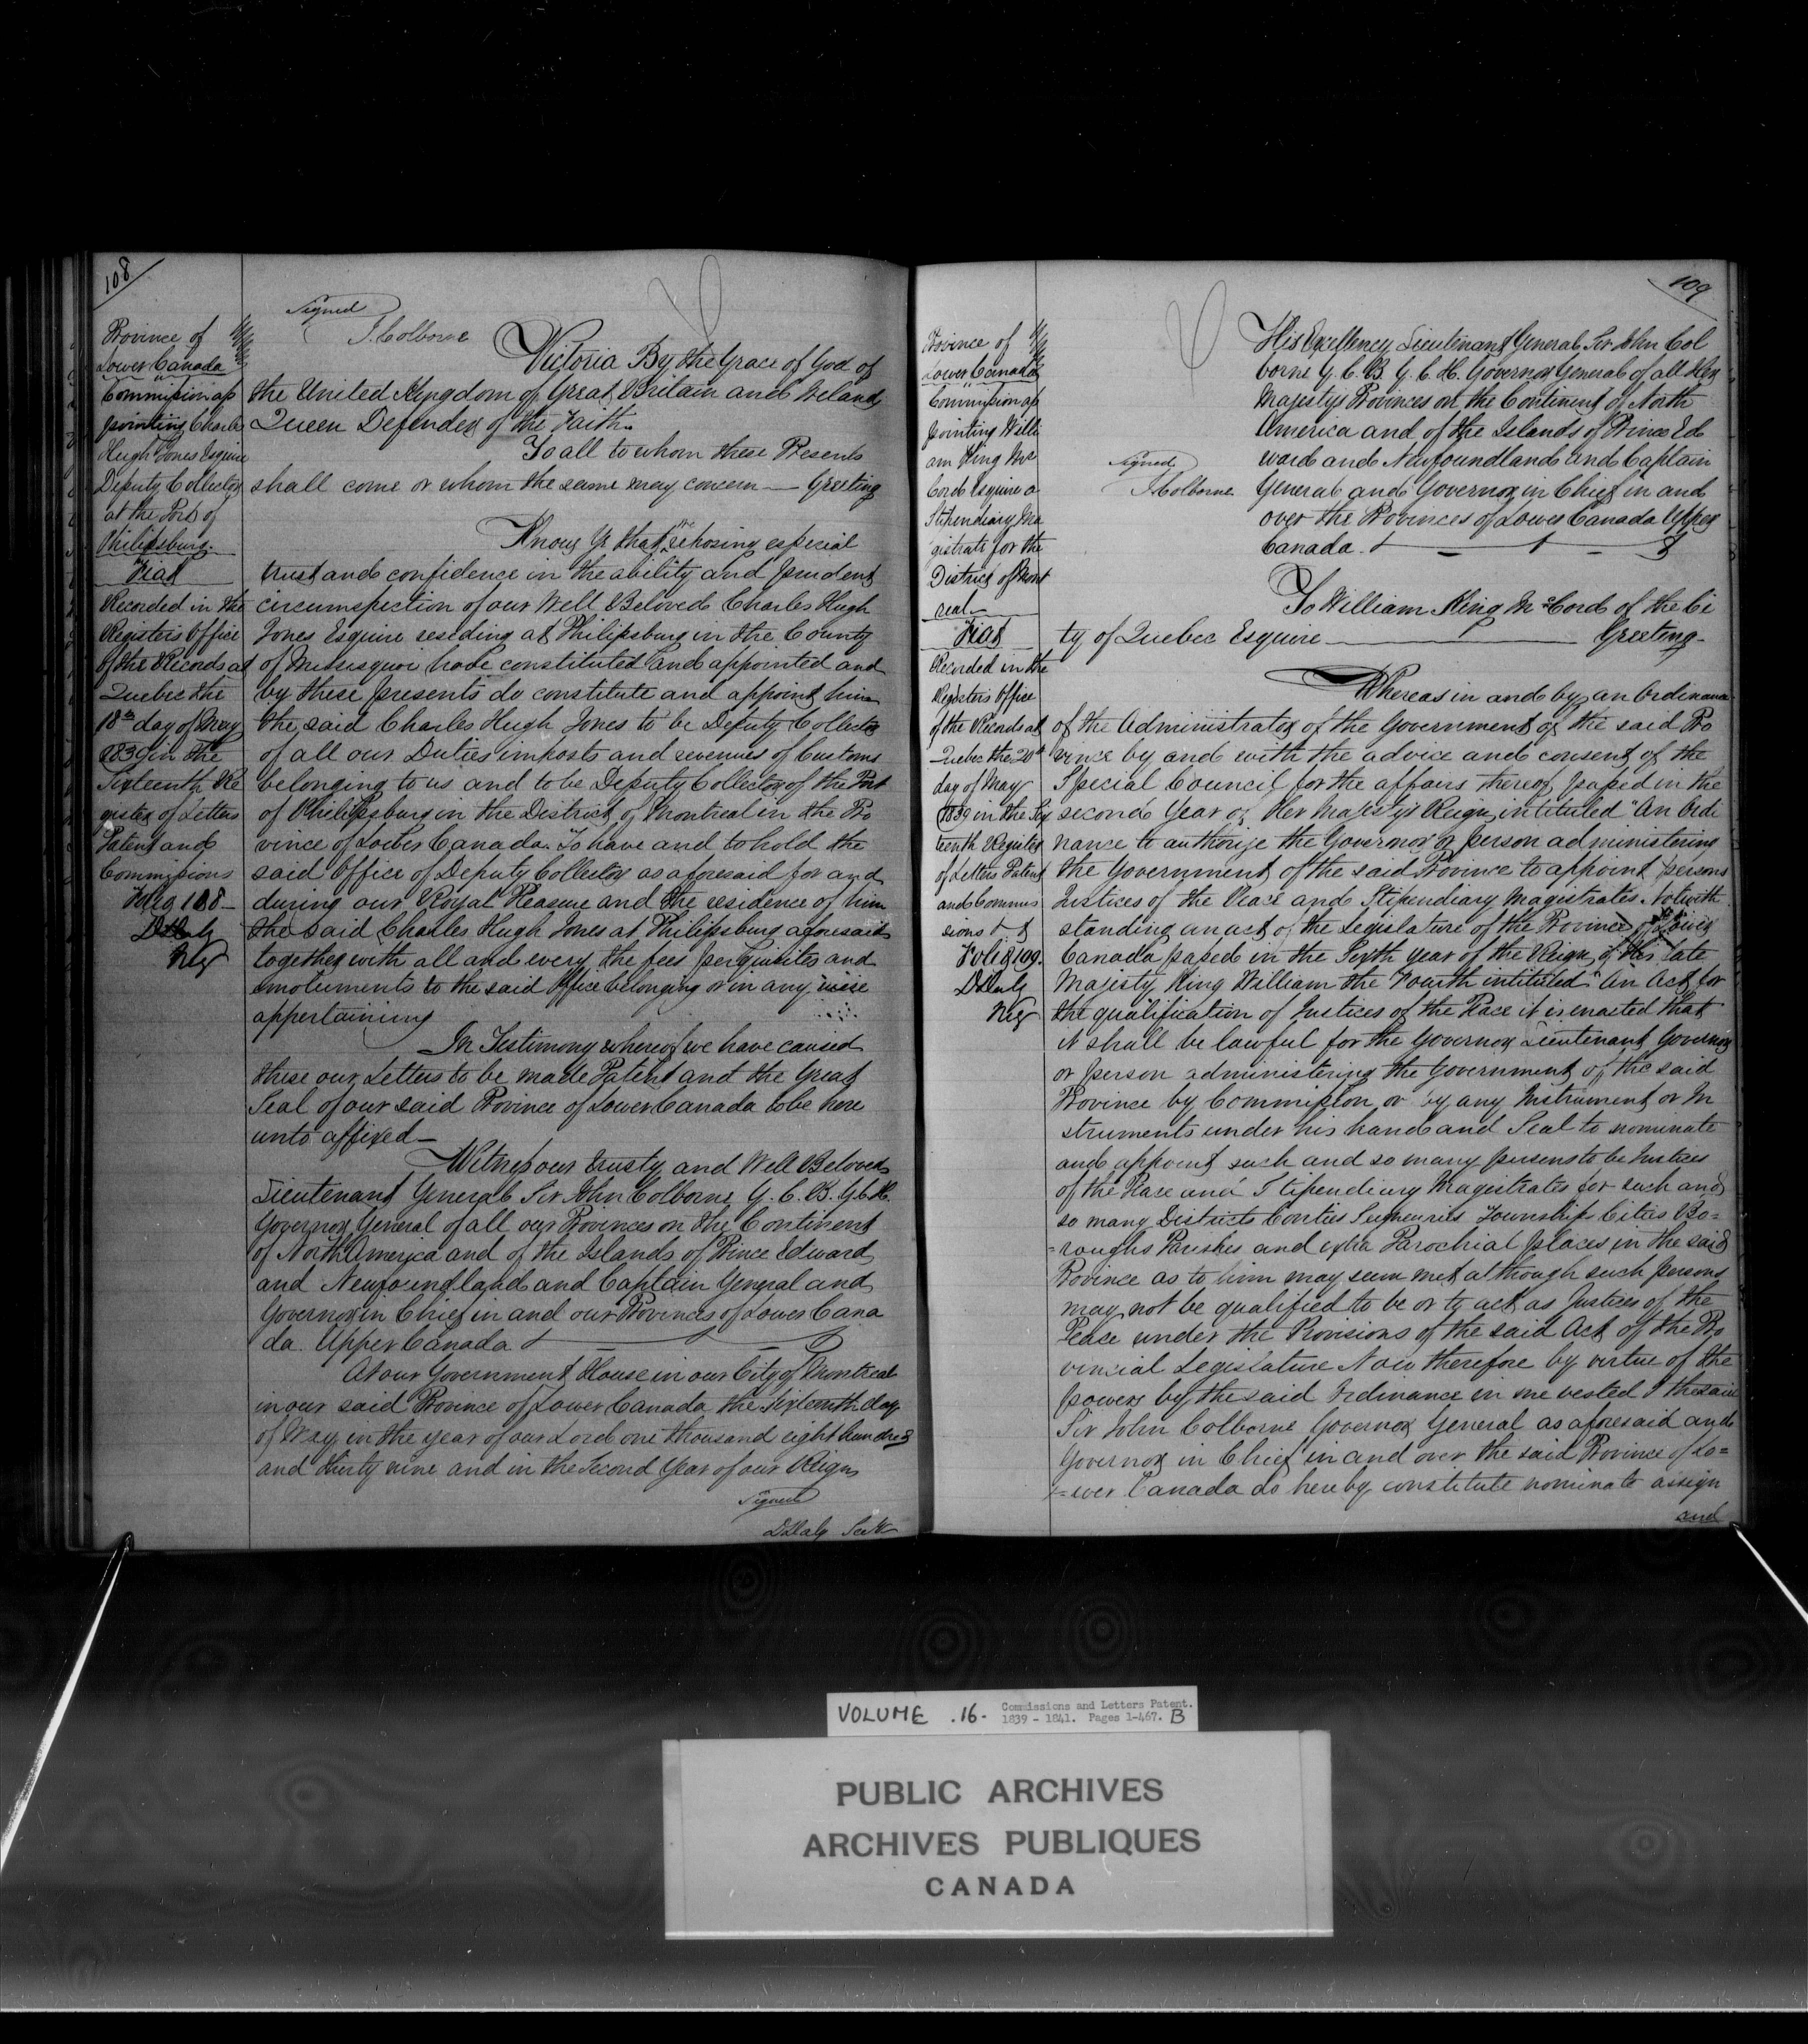 108
Province of
Lower Canada
Commission ap
pointing Charles
Hugh Jones Esquire
Deputy Collector
at the Port of
Philipsburg.
Fiat
Recorded in the
Registers Office
of the Records at
Quebec the
18th day of May
1839 in the
Sixteenth Re
gister of Letters
Patent and
Commissions
Folio 108
D Daly
Reg
Signed
J. Colborne
Victoria By the Grace of God of
the United Kingdom of Great Britain and Ireland
Queen Defender of the Faith.
To all to whom these Presents
shall come or whom the same may concern — Greeting
Know Ye that we reposing especial
trust and confidence in the ability and prudent
circumspection of our Well Beloved Charles Hugh
Jones Esquire residing at Philipsburg in the County
of Missisquoi have constituted and appointed and
by these presents do constitute and appoint him
the said Charles Hugh Jones to be Deputy Collector
of all our Duties imposts and revenues of Customs
belonging to us and to be Deputy Collector of the Port
of Philipsburg in the District of Montreal in the Pro
vince of Lower Canada. To have and to hold the
said Office of Deputy Collector as aforesaid for and
during our Royal Pleasure and the residence of him
the said Charles Hugh Jones at Philipsburg aforesaid
together with all and every the fees perquisites and
emoluments to the said Office belonging or in any wise
appertaining
In Testimony whereof we have caused
these our Letters to be made Patent and the Great
Seal of our said Province of Lower Canada to be here
unto affixed —
Witness our trusty and Well Beloved
Lieutenant General Sir John Colborne G. C. B. G. C. H.
Governor General of all our Provinces on the Continent
of North America and of the Islands of Prince Edward
and Newfoundland and Captain General and
Governor in Chief in and our Provinces of Lower Cana
da Upper Canada &
At our Government House in our City of Montreal
in our said Province of Lower Canada the Sixteenth day
of May in the year of our Lord one thousand eight hundred
and thirty nine and in the Second Year of our Reign
Signed
D Daly Secy
109
Province of
Lower Canada
Commission ap
pointing Willi
am King Mc
Cord Esquire a
Stipendiary Ma
gistrate for the
District of Mont
real
Fiat
Recorded in the
Registers Office
of the Records at
Quebec the 20th
day of May
1839 in the Six
teenth Register
of Letters Patent
and Commis
sions &
Folio 109.
D Daly
Reg
Signed
J Colborne
His Excellency Lieutenant General Sir John Col
borne G. C. B. G. C. H. Governor General of all Her
Majestys Provinces on the Continent of North
America and of the Islands of Prince Ed
ward and Newfoundland and Captain
General and Governor in Chief in and
over the Provinces of Lower Canada Upper
Canada. &
To William King McCord of the Ci
ty of Quebec Esquire — Greeting
Whereas in and by an Ordinance
of the Administrator of the Government of the said Pro
vince by and with the advice and consent of the
Special Council for the affairs thereof passed in the
second Year of Her Majesty's Reign intituled "An Ordi
nance to authorize the Governor or person administering
the Government of the said Province to appoint persons
Justices of the Peace and Stipendiary Magistrates Notwith
standing an act of the Legislature of the Province of Lower
Canada passed in the Sixth year of the Reign of His late
Majesty King William the Fourth intituled "An Act for
the qualification of Justices of the Peace it is enacted that
it shall be lawful for the Governor Lieutenant Governor
or person administering the Government of the said
Province by Commission or by any Instrument or In
struments under his hand and Seal to nominate
and appoint such and so many persons to be Justices
of the Peace and Stipendiary Magistrates for such and
so many Districts Conties Seigneuries Townships Cities Bo=
=roughs Parishes and extra Parochial places in the said
Province as to him may seem met although such persons
may not be qualified to be or to act as Justices of the
Peace under the Provisions of the said Act of the Pro
vincial Legislature Now therefore by virtue of the
powers by the said Ordinance in me vested I the said
Sir John Colborne Governor General as aforesaid and
Governor in Chief in and over the said Province of Lo=
=wer Canada do hereby constitute nominate assign
and
VOLUME .16- Commissions and Letters Patent.
1839 - 1841. Pages 1-467. B
PUBLIC ARCHIVES
ARCHIVES PUBLIQUES
CANADA